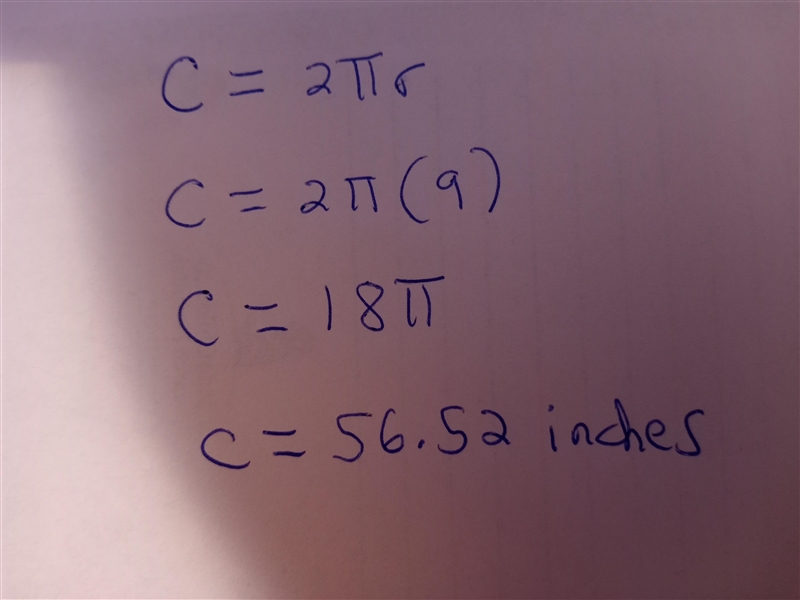 C = 2πr
C = 2π(9)
C = 18π
C = 56.52 inches